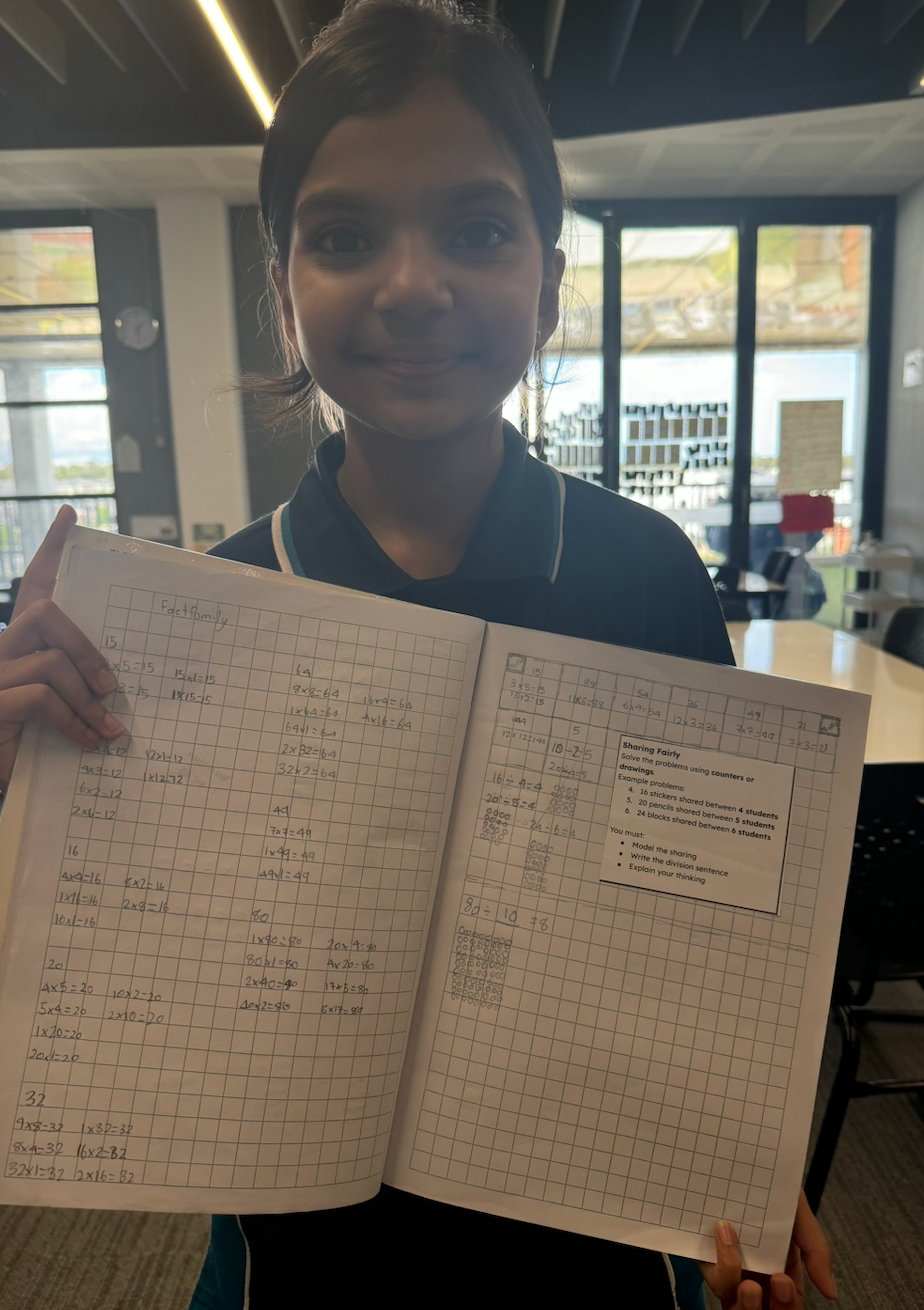 Factfamily
15
x5=15 15x1=15
3=15 1x15=15
4=12 12x1=12
4x3=12 1x12=12
6x2=12
2x6=12
16
4x4=16 8x2=16
1x16=16 2x8=16
16x1=16
20
4x5=20 10x2=20
5x4=20 2x10=20
1x20=20
20x1=20
32
4x8=32 1x32=32
8x4=32 16x2=32
32x1=32 2x16=32
64
8x8=64 16x4=64
1x64=64 4x16=64
64x1=64
2x32=64
32x2=64
49
7x7=49
1x49=49
49x1=49
80
1x80=80 20x4=80
80x1=80 4x20=80
2x40=80 17x5=80
40x2=80 5x17=80
15 88 54 36 49 21
3x5=15 6x9=54 12x3=36 7x7=49 7x3=21
144 5
12x12=144 10÷2=5
20÷4=5
16÷4=4
20÷5=4
24÷6=4
80÷10=8
Sharing Fairly
Solve the problems using counters or
drawings.
Example problems:
4. 16 stickers shared between 4 students
5. 20 pencils shared between 5 students
6. 24 blocks shared between 6 students
You must:
• Model the sharing
• Write the division sentence
• Explain your thinking